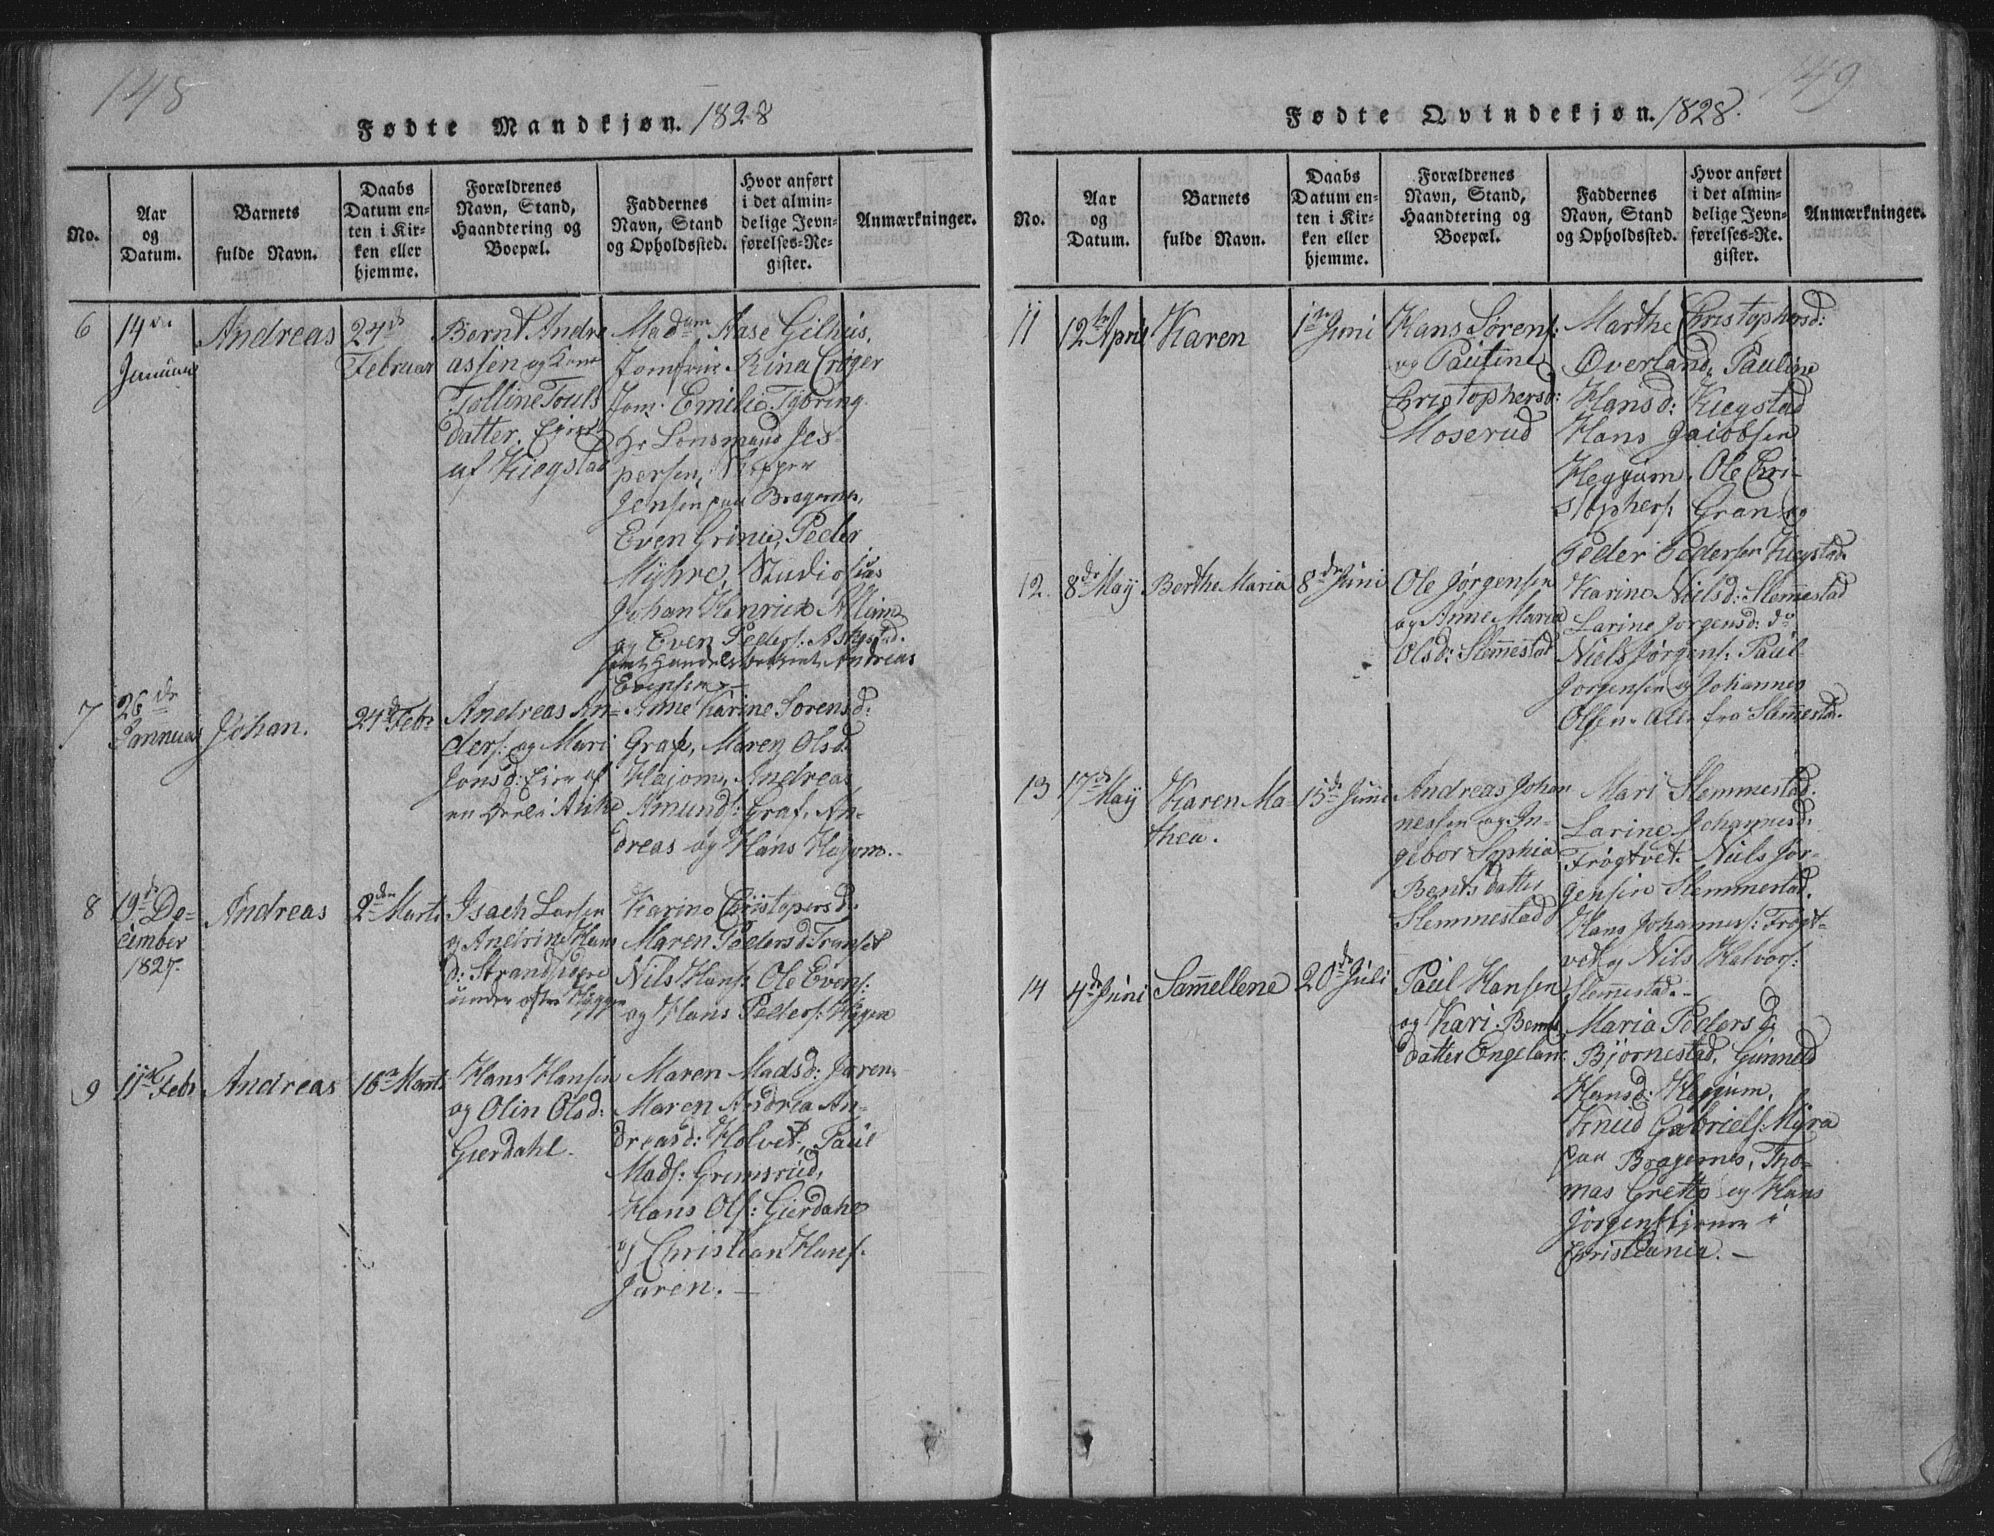 148
Fødte Mandkjøn. 1828
No.
Aar
og
Datum.
Barnets
fulde Navn.
Daabs
Datum en-
ten i Kir-
ken eller
hjemme.
Forældrenes
Navn, Stand,
Haandtering og
Boepæl.
Faddernes
Navn, Stand
og Opholdssted.
Hvor anført
i det almin-
delige Jevn-
førelses-Re-
gister.
Anmærkninger.
6
14de
Januar
Andreas
24de
Februar
Bernt Andre
assen og Kone
Tolline Pouls
datter,
af Kiegstad
Madam Aase Gilhus,
Jomfrue Rina Crøger
Jom. Emilie Tybring
Hr Lensmand Jes-
persen, Skipper
Jensen paa Bragernes,
Even Grine, Peder
Myhre, Studiosus
Johan Henrich
og Even Peders: Askestad.
samt Handelsbetient Andreas
Evensen.
7
26de
Jannuar
Johan.
24de Febr
Andreas An-
ders: og Mari
Jonsd: Eier af
en Deel i
Anne Karine Sørensd:
Graf, Maren Olsd.
Hajom, Andreas
Amunds: Graf, An-
dreas og Hans Hajom.
8
19de De-
cember
1827.
Andreas
2den Marts
Isach Larsen
og Andrine Han
d: Strandsidere
under østre Høggen
Karine Christopersd.
Maren Pedersd Transet
Nils Hans: Ole Evens:
og Hans Peders: Høggen
9
11te Febr
Andreas
16de Marts
Hans Hansen
og Olin Olsd:
Gierdahl.
Maren Madsd: Jaren
Maren Andrea An-
dreasd: Holvet, Paul
Mads: Gremsrud,
Hans Ols: Gierdahl
og Christian Hans:
Jaren.
149
Fødte Qvindekjøn. 1828.
No.
Aar
og
Datum.
Barnets
fulde Navn.
Daabs
Datum en-
ten i Kir-
ken eller
hjemme.
Forældrenes
Navn, Stand,
Haandtering og
Boepæl.
Faddernes
Navn, Stand
og Opholdssted.
Hvor anført
i det almin-
delige Jevn-
førelses-Re-
gister.
Anmærkninger.
11
12te April
Karen
1ste Juni
Hans Sørens:
og Pauline
Christophersd:
Moserud
Marthe Christophersd:
Overland, Pauline
Hansd: Kiegstad
Hans Jacobsen
Heggum, Ole Chri-
stophers: Gran og
Peder Pedersen Kiegstad.
12.
8de May
Berthe Maria
8de Juni
Ole Jørgensen
og Anne Maria
Olsd: Slemestad
Karine Nielsd: Slemestad
Larine Jørgensd: do
Niels Jørgens: Paul
Jørgensen og Johannes
Olsen. alle fra Slemestad.
13
17de May
Karen Ma
thea.
15de Juni
Andreas Johan
nessen og In-
gebor Sophia
Bentsdatter
Slemmestad
Mari Slemmestad.
Larine Johannesd:
Frøgtvet. Niels Jør-
gensen Slemmestad.
Hans Johanness: Frøgt-
vet og Nils Halvors:
Slemestad.
14
4de Juni
Samellene
20de Juli
Paul Hansen
og Kari Bernts
datter Engelan
Maria Pedersd.
Bjørnestad, Gunneld
Hansd: Heggum,
Knud Gabriels: Myra
paa Bragernes, Tho-
mas Grette og Hans
Jørgens tjenere i
Christiania.